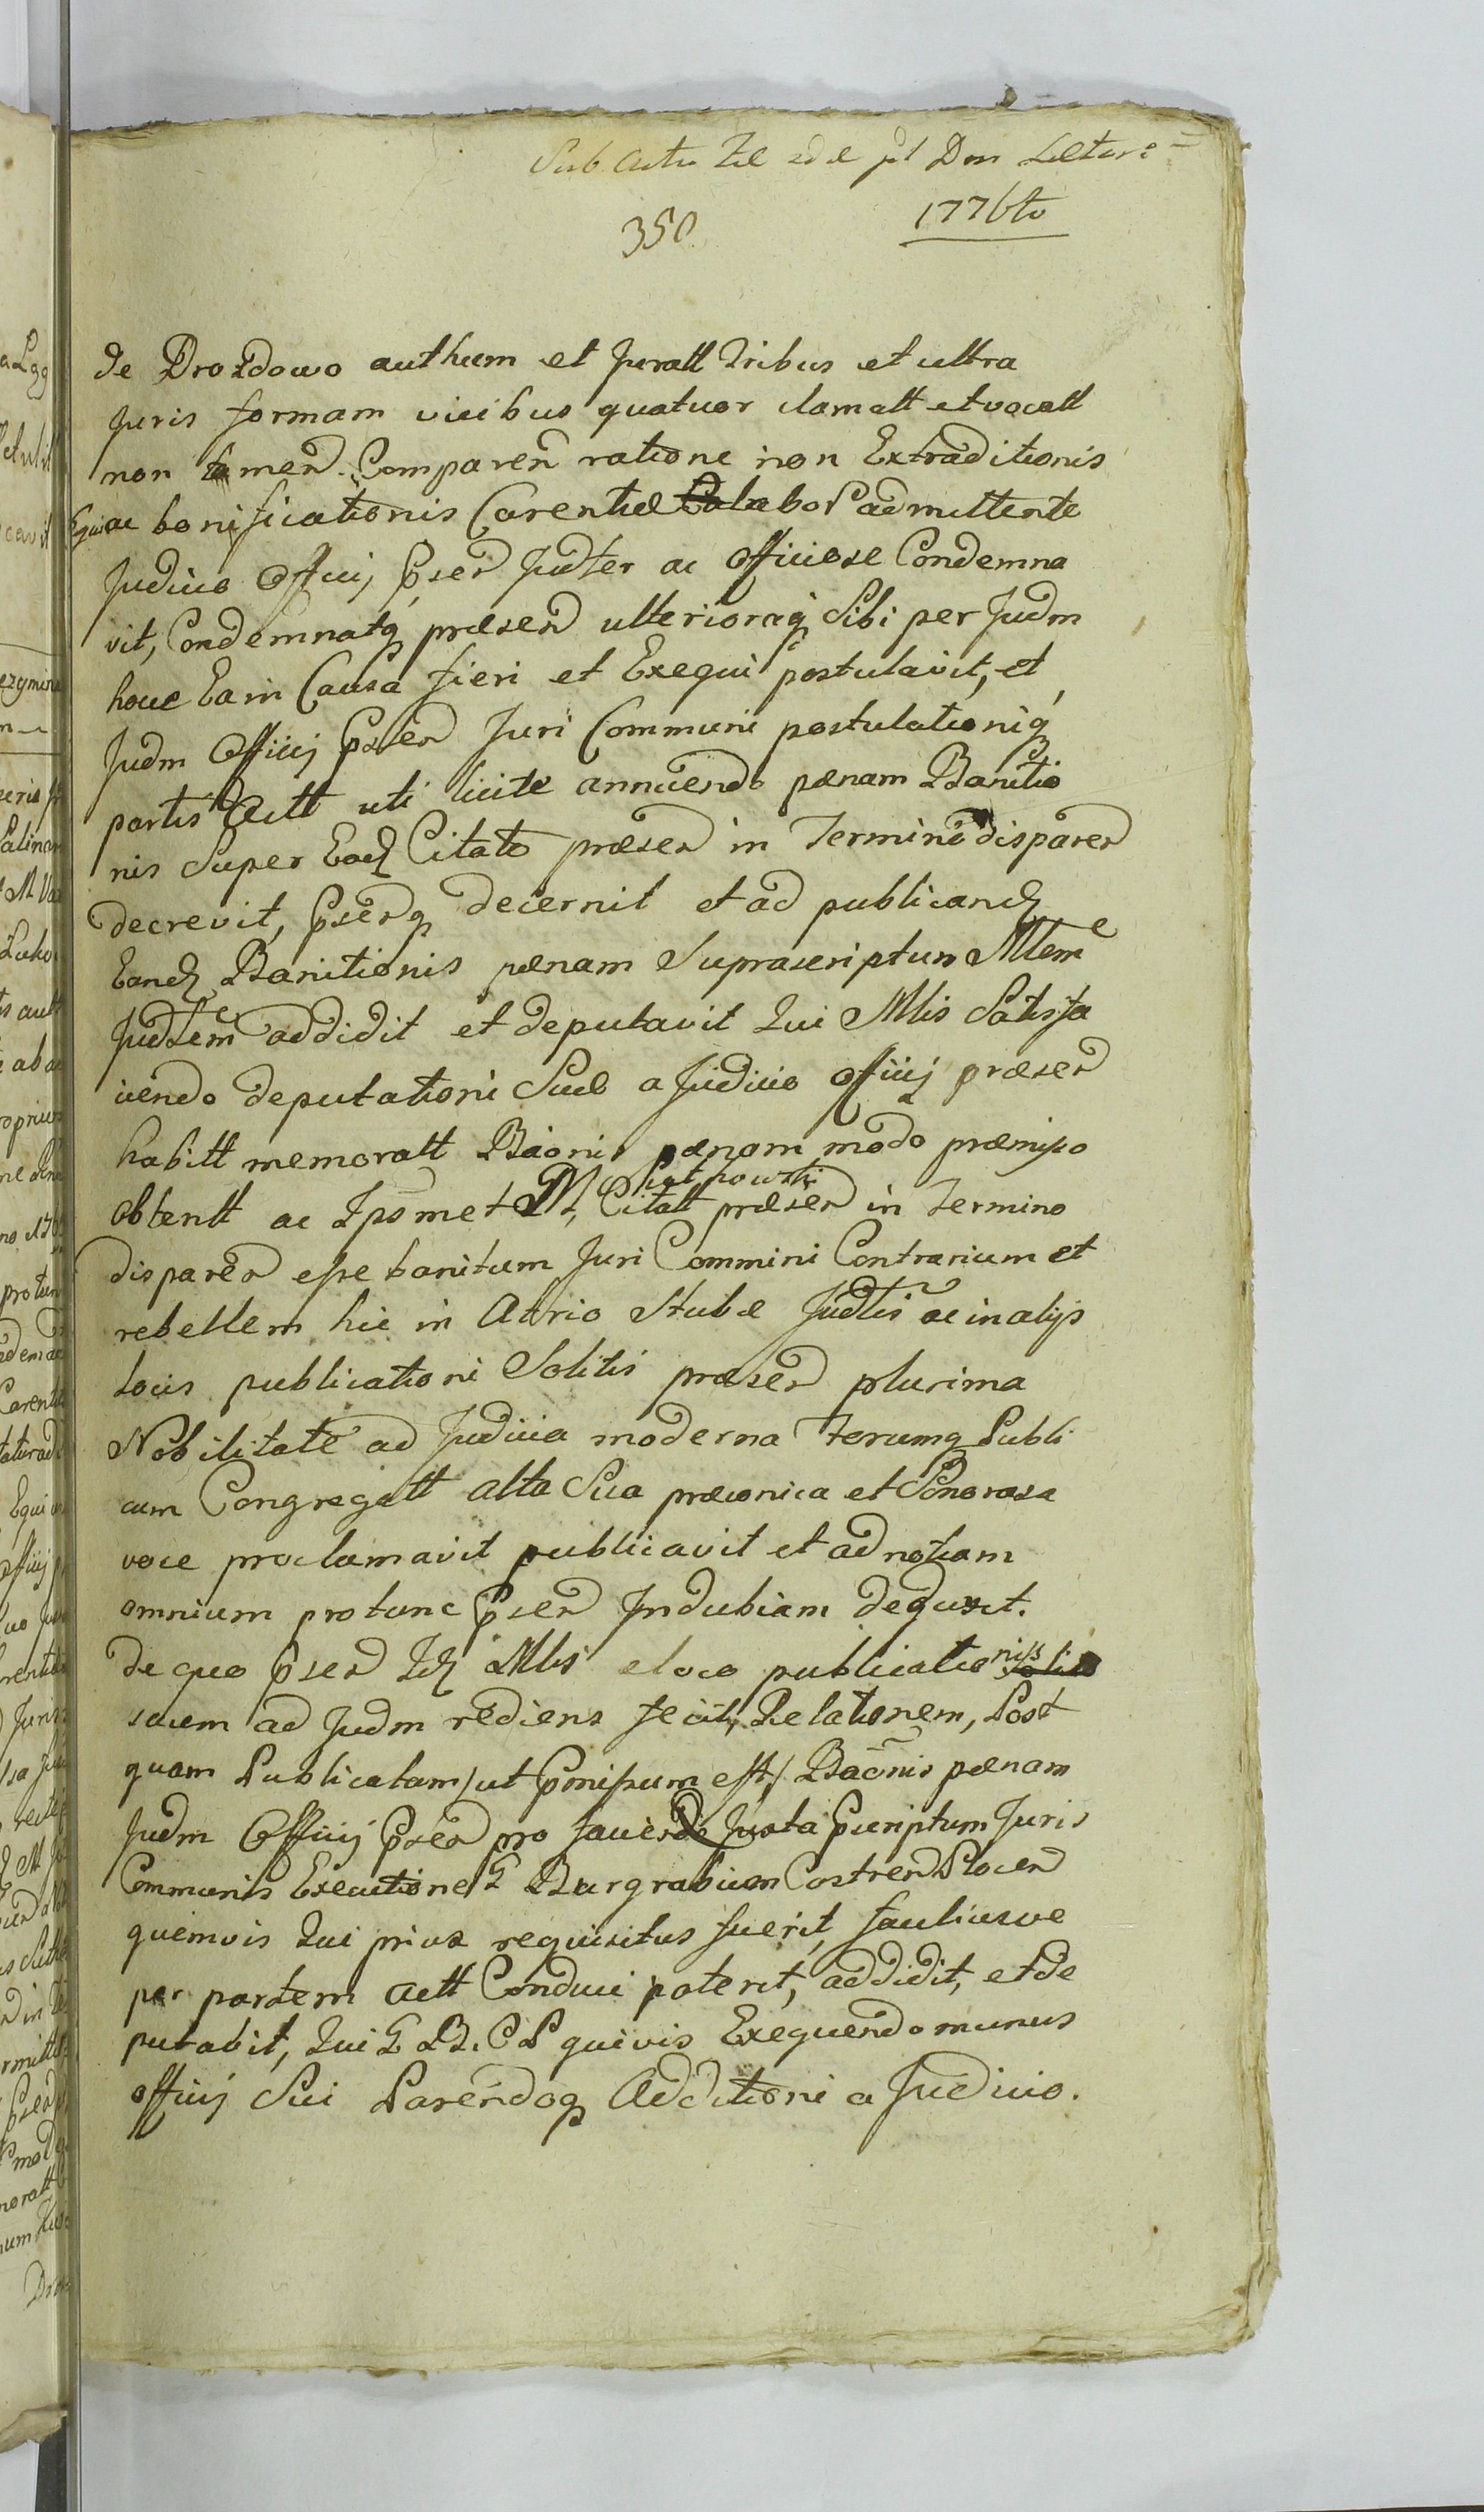 Sub Actu fel 2da pt Dom Laetare
350.
1776to
de Drozdowo authum et Juratt Tribus et ultra
Juris formam vicibus quatuor clamatt et vocatt
non tamen Comparen ratione non Extraditionis
Equi ac bonificationis Carentiæ labor admittente
Judicio Officij Pnsen Judter ac officiose Condemna
vit, Condemnatq præsen ulterioraq Sibi per Judm
hocce Ea in Causa fieri et Exequi postulavit, et
Judm Officij Pnsen Juri Communi postulationiq
partis Actt uti licite annuendo pænam Banitio
nis Super Eod Citato præsen in Termino disparen
decrevit, Pnsenq decernit et ad publicand
Eand Banitionis pænam Suprascriptum Mltem
Judlem addidit et deputavit Qui Mlis Satisfa
ciendo deputationi Suæ a Judicio officij præsen
habitt memoratt Baonis pænam modo præmisso
obtentt ac Ipsmet M, Citatt præsen in Termino
disparen esse banitum Juri Commini Contrarium et
rebellem hic in Atrio Stubæ Judlis ac in alijs
locis publicationi Solitis præsen plurima
Nobilitate ad Judicia moderna Ferumq Publi
cum Congregatt alta Sua præconica et Sonorosa
voce proclamavit publicavit et ad notiam
omnium protunc Pnsen Indubiam deduxit.
de quo Pnsen Id Mlis e loco publicationis
suem ad Judm rediens fecit Relationem, Post
quam Publicatam / ut Pmissum est / Baonis pænam
Judm Officij Pnsen pro facienda Juxta Pscriptum Juris
Communis Executione G Burgrabium Castren Plocen
quemvis Qui prius requisitus fuerit, faciliusve
per partem Actt Conduci poterit, addidit, et de
putabit, Qui G B. C P quivis Exequendo munus
officij Sui Parendoq Additioni a Judicio.